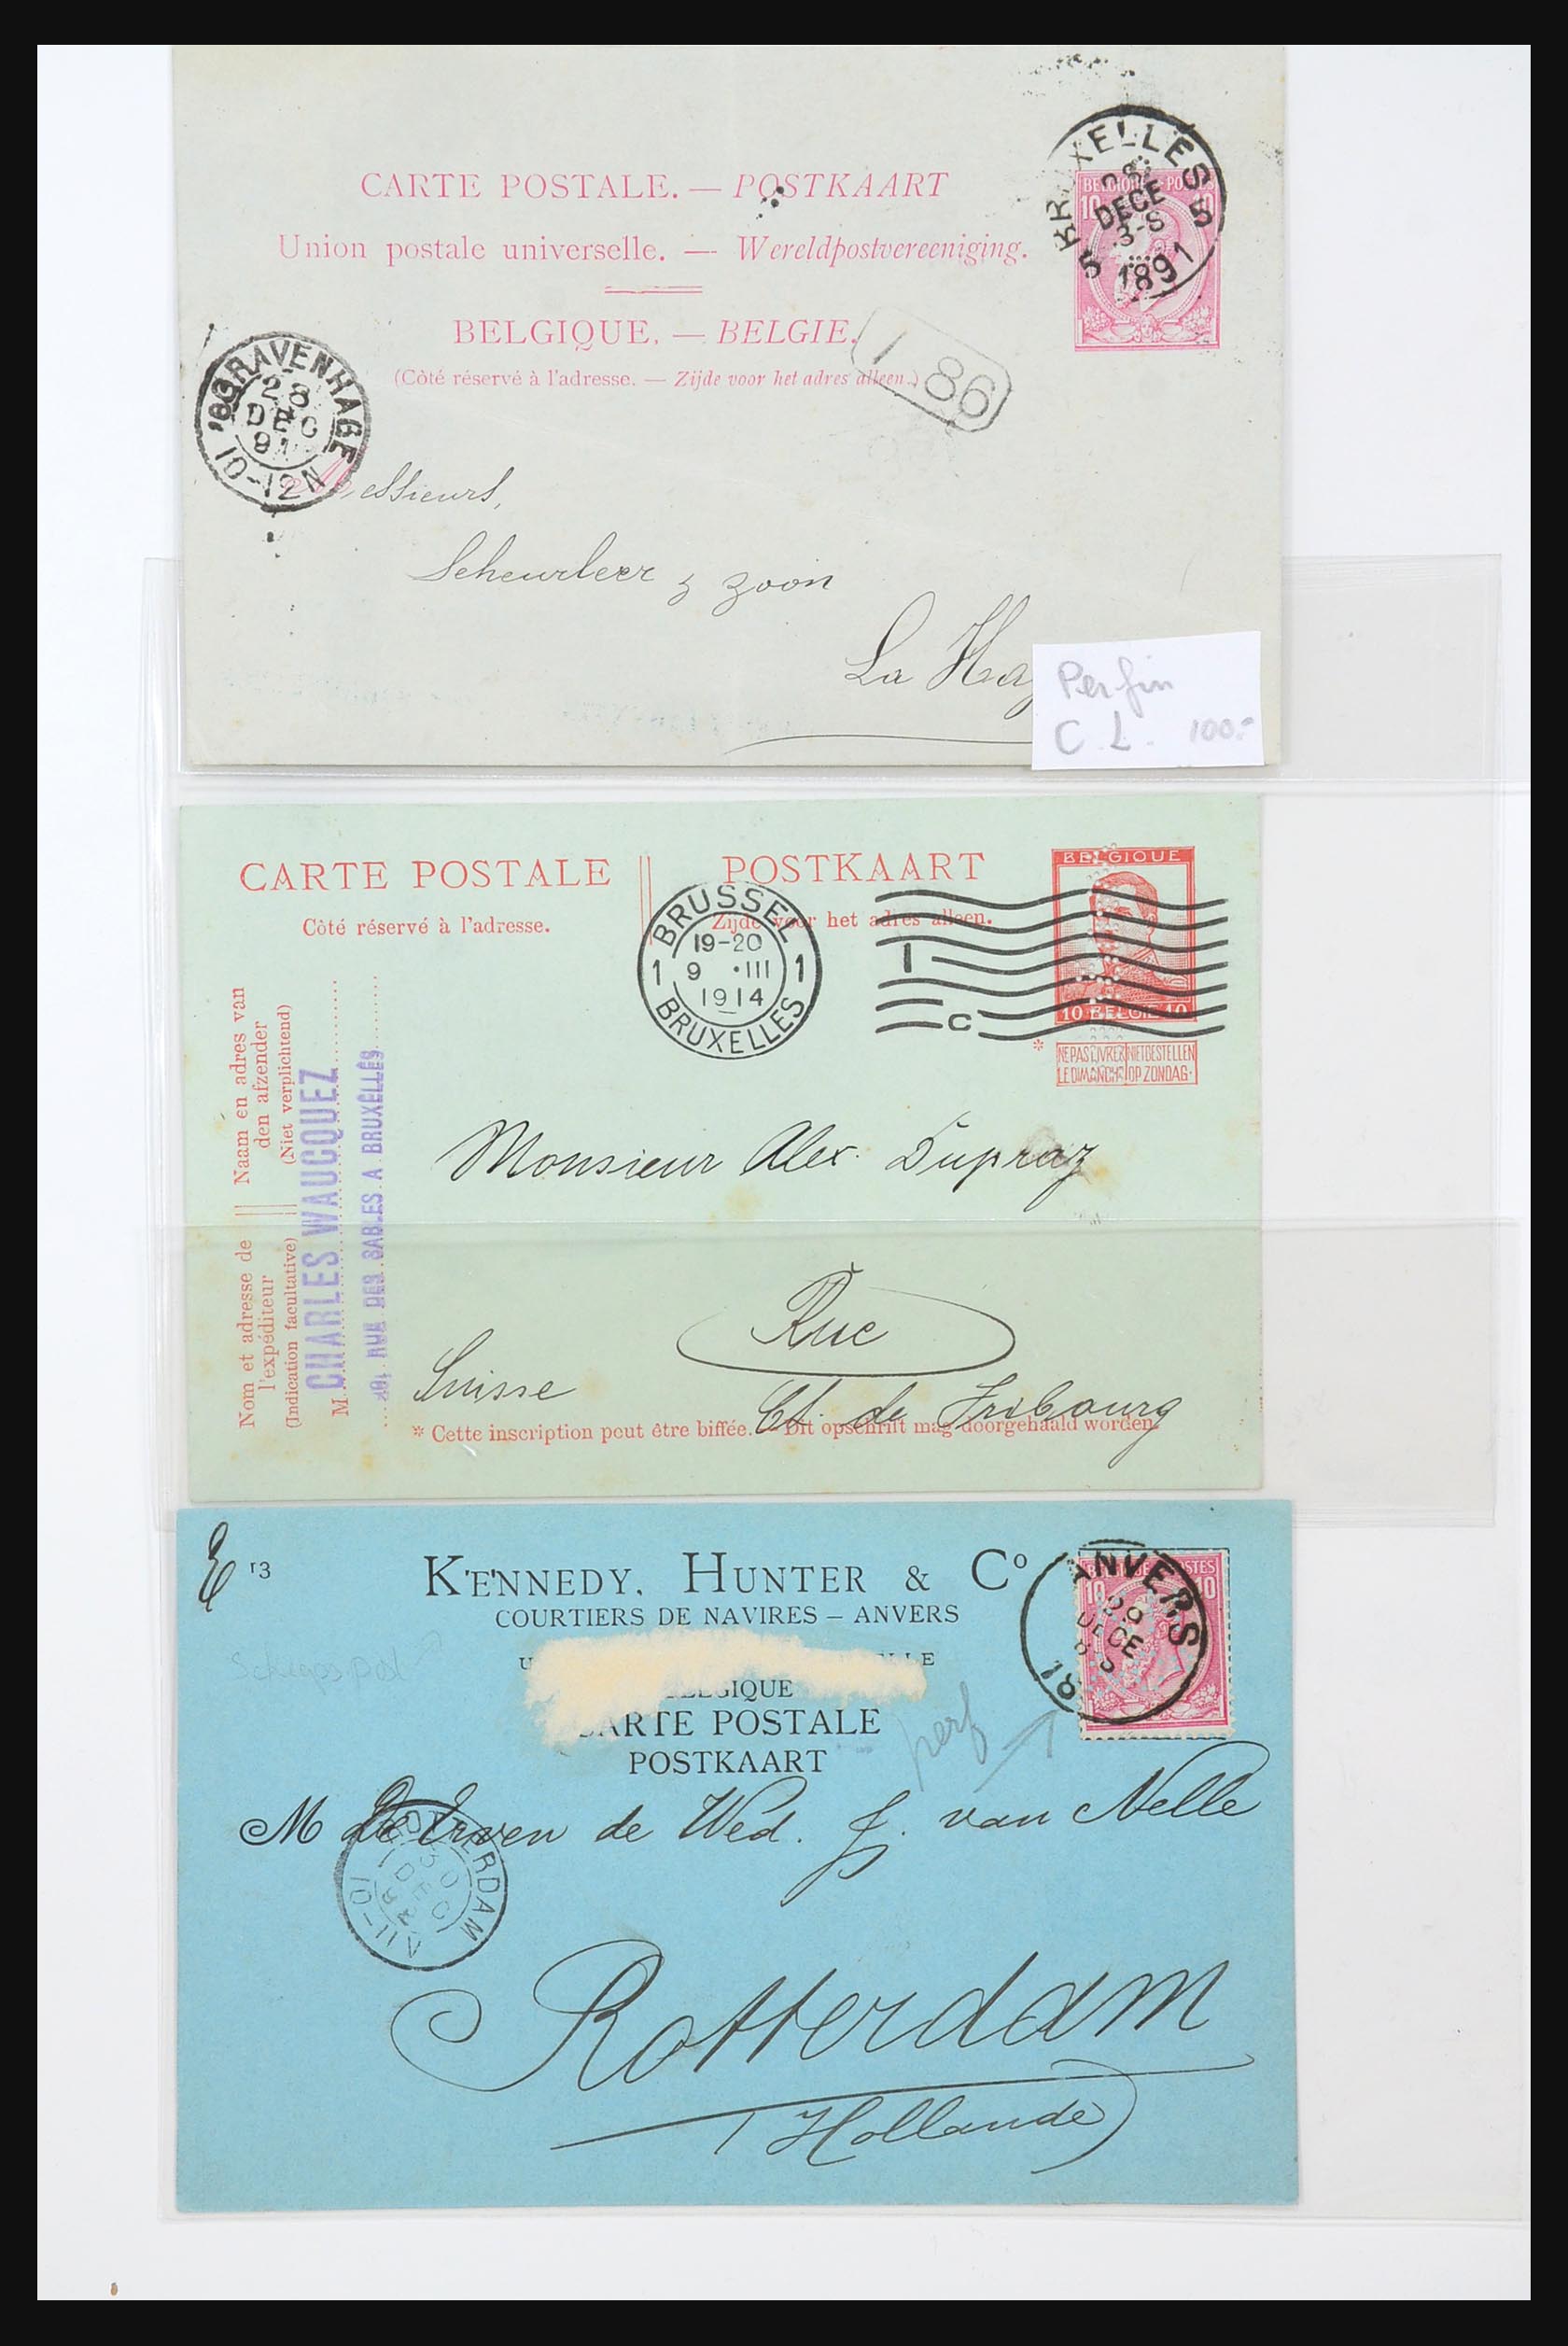 CARTE POSTALE. — POSTKAART
Union postale universelle. — Wereldpostvereeniging.
BELGIQUE. — BELGIE.
(Côté réservé à l'adresse. — Zijde voor het adres alleen.)
BRUXELLES
5 5
DECE
3-S
1891
BELGIQUE POSTES
10 10
'SGRAVENHAGE
28
DEC
91
10-12N
186
Messieurs,
Scheurleer & zoon
La Hay
Perfin
C L. 100.-
CARTE POSTALE
Côté réservé à l'adresse.
POSTKAART
Zijde voor het adres alleen.
BRUSSEL
19-20
1 9 ·III 1
1914
BRUXELLES
1
C
BELGIQUE
10 BELGIE 10
* NE PAS LIVRER NIET BESTELLEN
LE DIMANCHE OP ZONDAG.
Naam en adres van
den afzender
(Niet verplichtend)
Nom et adresse de
l'expéditeur
(Indication facultative)
M CHARLES WAUCQUEZ
RUE DES SABLES A BRUXELLES
Monsieur Alex. Dupraz
Rue
Suisse
Ct. de Fribourg
* Cette inscription peut être biffée. — Dit opschrift mag doorgehaald worden.
E 13
KENNEDY, HUNTER & Co
COURTIERS DE NAVIRES – ANVERS
U ELLE
BELGIQUE
CARTE POSTALE
POSTKAART
ANVERS
29
DECE
18
10 10
perf
M De Erven de Wed. J. van Nelle
ROTTERDAM
30
DEC
Rotterdam
(Hollande)